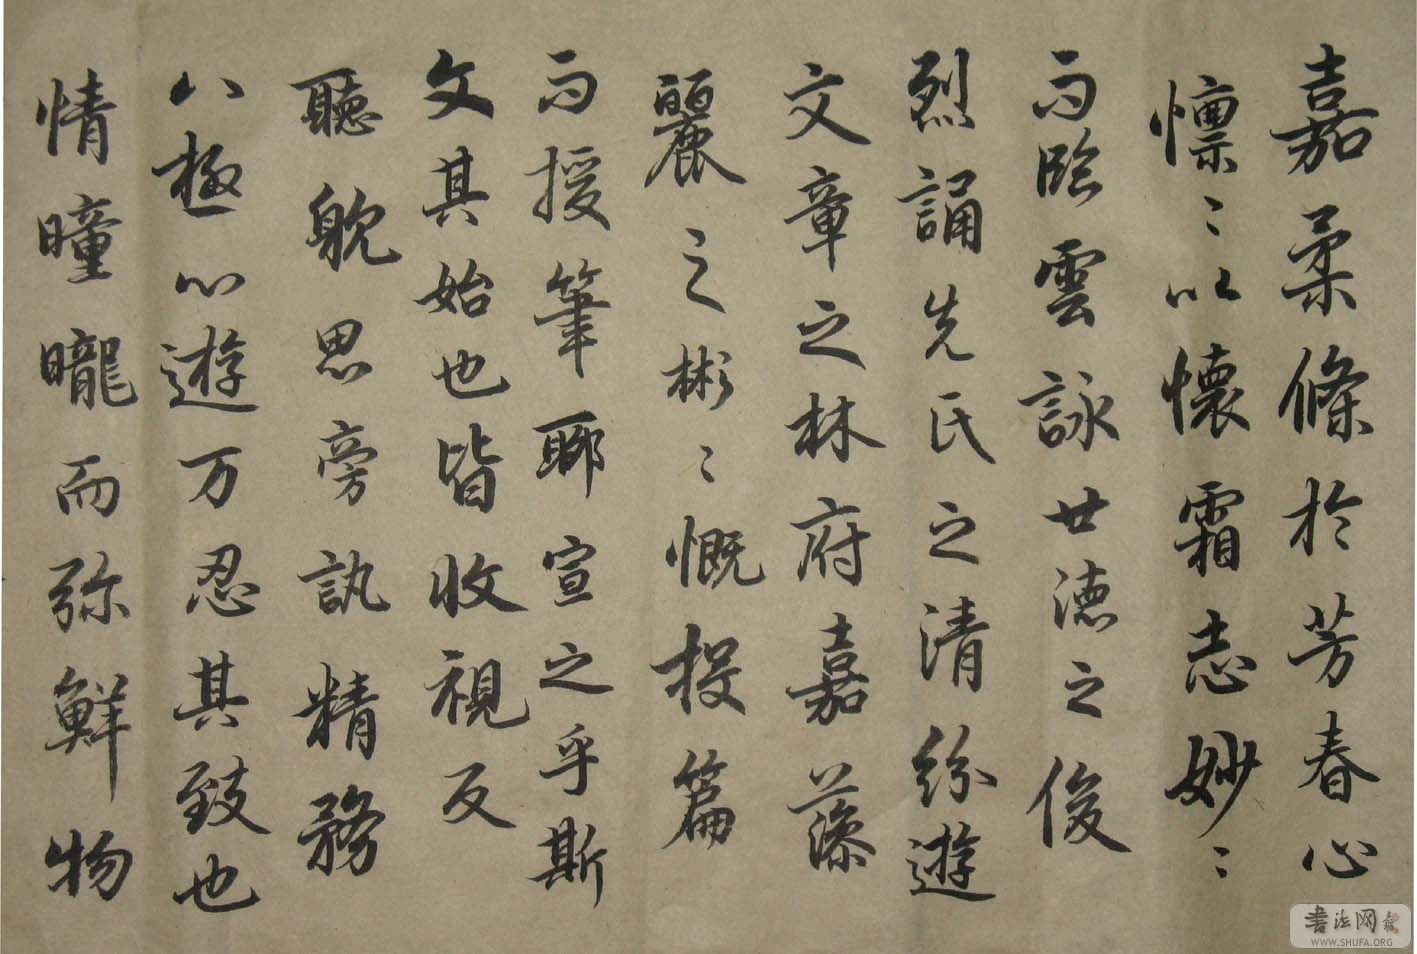 嘉柔條於芳春心
懍〻以懷霜志妙〻
而臨雲詠廿德之俊
烈誦先氏之清紛遊
文章之林府嘉藻
麗之彬〻慨投篇
而援筆聊宣之乎斯
文其始也皆收視反
聽躭思旁訊精務
八極心遊万忍其致也
情曈曨而弥鮮物
书法网
WWW.SHUFA.ORG